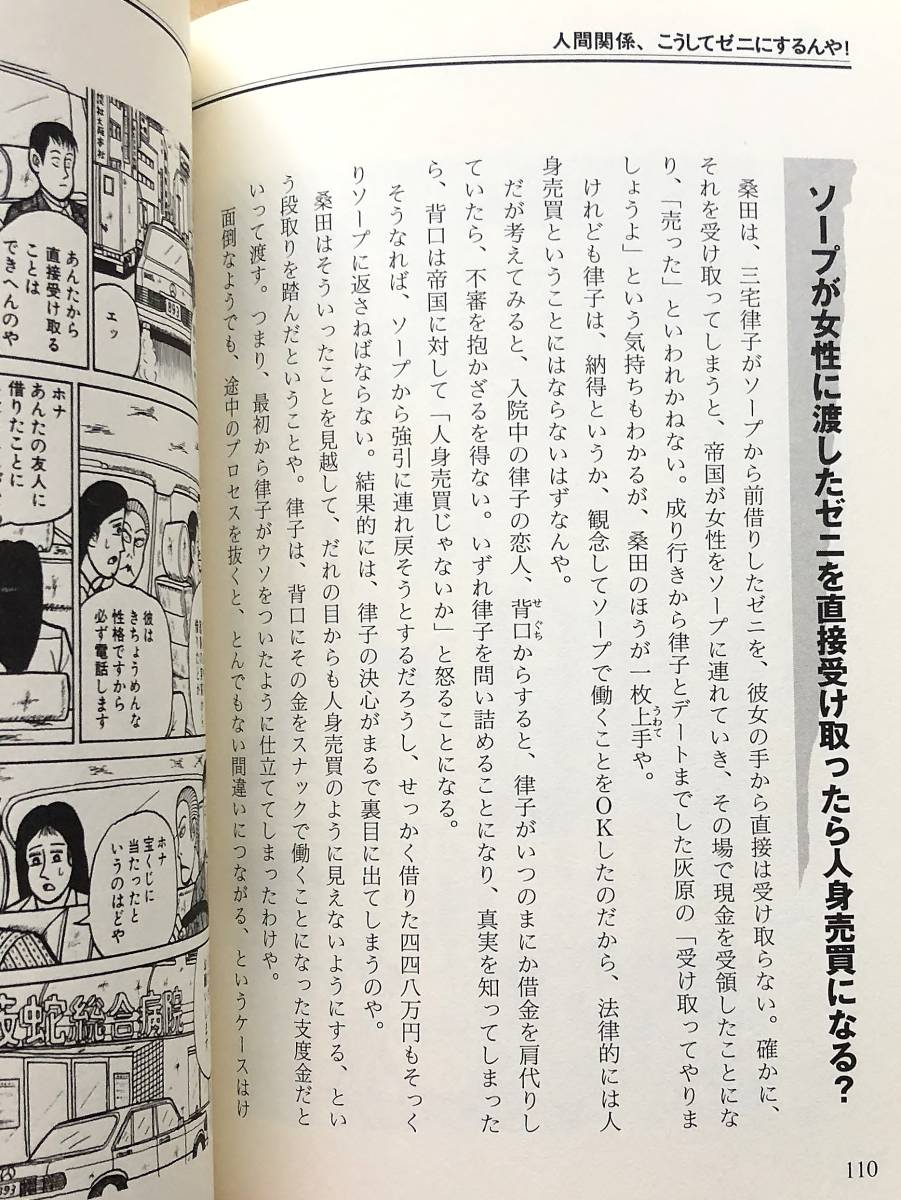 人間関係、こうしてゼニにするんや！
ソープが女性に渡したゼニを直接受け取ったら人身売買になる？
桑田は、三宅律子がソープから前借りしたゼニを、彼女の手から直接は受け取らない。確かに、
それを受け取ってしまうと、帝国が女性をソープに連れていき、その場で現金を受領したことにな
り、「売った」といわれかねない。成り行きから律子とデートまでした灰原の「受け取ってやりま
しょうよ」という気持ちもわかるが、桑田のほうが一枚上手や。
うわて
けれども律子は、納得というか、観念してソープで働くことをOKしたのだから、法律的には人
身売買ということにはならないはずなんや。
だが考えてみると、入院中の律子の恋人、背口からすると、律子がいつのまにか借金を肩代りし
せ ぐち
ていたら、不審を抱かざるを得ない。いずれ律子を問い詰めることになり、真実を知ってしまった
ら、背口は帝国に対して「人身売買じゃないか」と怒ることになる。
そうなれば、ソープから強引に連れ戻そうとするだろうし、せっかく借りた四四八万円もそっく
りソープに返さねばならない。結果的には、律子の決心がまるで裏目に出てしまうのや。
桑田はそういったことを見越して、だれの目からも人身売買のように見えないようにする、とい
う段取りを踏んだということや。律子は、背口にその金をスナックで働くことになった支度金だと
いって渡す。つまり、最初から律子がウソをついたように仕立ててしまったわけや。
面倒なようでも、途中のプロセスを抜くと、とんでもない間違いにつながる、というケースはけ
110
エッ
あんたから
直接受け取る
ことは
できへんのや
893
ホナ
あんたの友人に
借りたことに
彼は
きちょうめんな
性格ですから
必ず電話します
ホナ
宝くじに
当たったと
いうのはどや
蛇総合病院
893